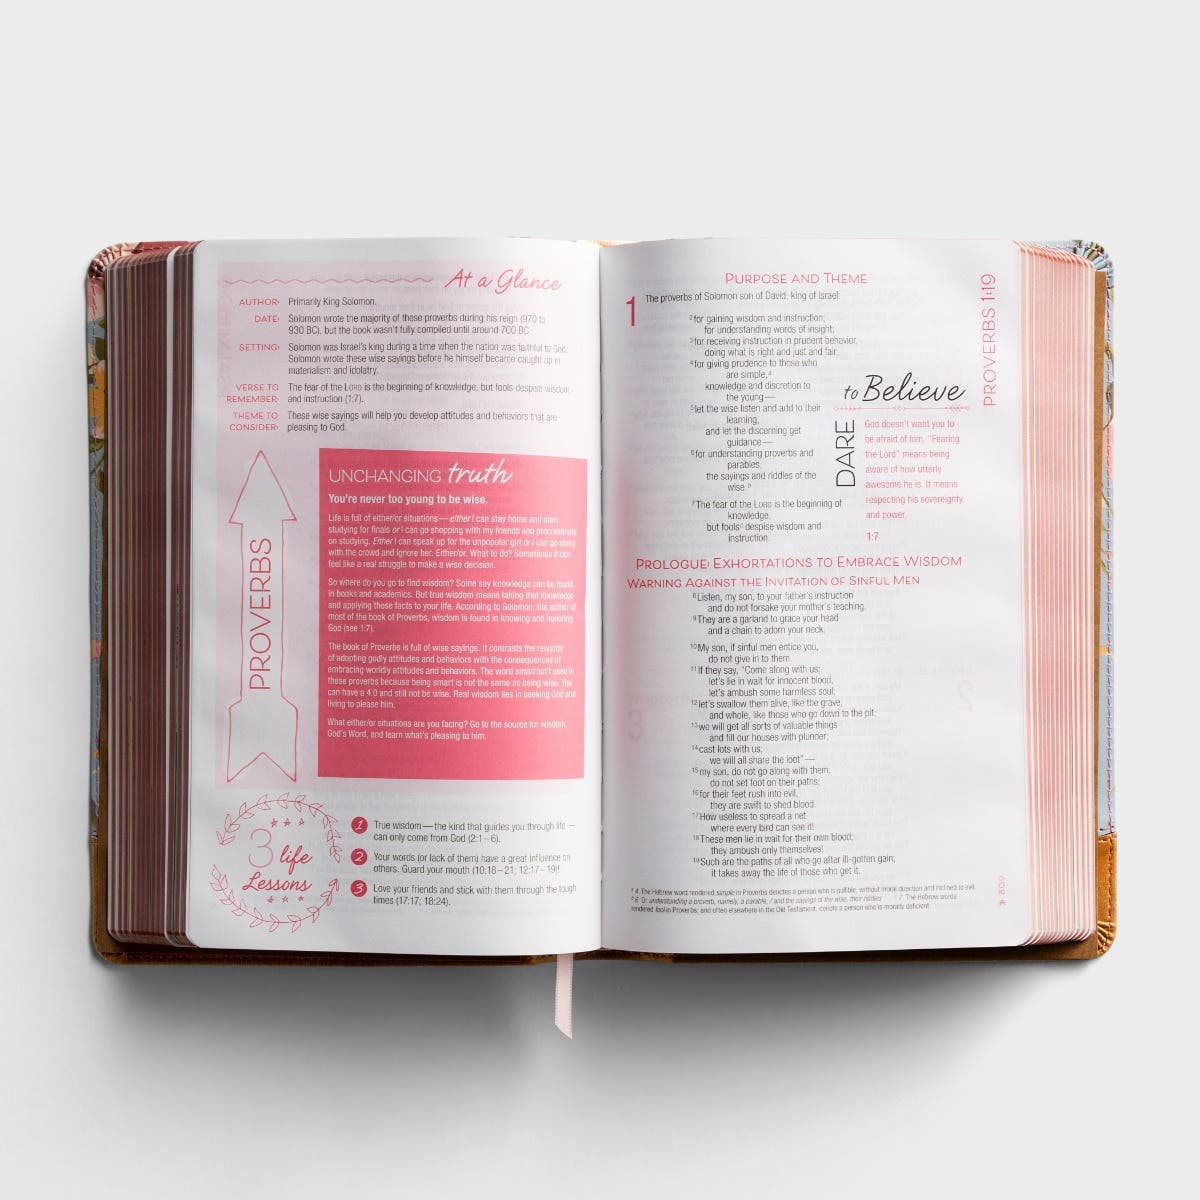 At a Glance
AUTHOR: Primarily King Solomon.
DATE: Solomon wrote the majority of these proverbs during his reign (970 to
930 BC), but the book wasn't fully compiled until around 700 BC.
SETTING: Solomon was Israel's king during a time when the nation was faithful to God.
Solomon wrote these wise sayings before he himself became caught up in
materialism and idolatry.
VERSE TO REMEMBER: The fear of the LORD is the beginning of knowledge, but fools despise wisdom
and instruction (1:7).
THEME TO CONSIDER: These wise sayings will help you develop attitudes and behaviors that are
pleasing to God.
PROVERBS
UNCHANGING truth
You're never too young to be wise.
Life is full of either/or situations — either I can stay home and start
studying for finals or I can go shopping with my friends and procrastinate
on studying. Either I can speak up for the unpopular girl or I can go along
with the crowd and ignore her. Either/or. What to do? Sometimes it can
feel like a real struggle to make a wise decision.
So where do you go to find wisdom? Some say knowledge can be found
in books and academics. But true wisdom means taking that knowledge
and applying those facts to your life. According to Solomon, the author of
most of the book of Proverbs, wisdom is found in knowing and honoring
God (see 1:7).
The book of Proverbs is full of wise sayings. It contrasts the rewards
of adopting godly attitudes and behaviors with the consequences of
embracing worldly attitudes and behaviors. The word smart isn't used in
these proverbs because being smart is not the same as being wise. You
can have a 4.0 and still not be wise. Real wisdom lies in seeking God and
living to please him.
What either/or situations are you facing? Go to the source for wisdom,
God's Word, and learn what's pleasing to him.
3 life
Lessons
1 True wisdom — the kind that guides you through life —
can only come from God (2:1–6).
2 Your words (or lack of them) have a great influence on
others. Guard your mouth (10:18–21; 12:17–19)!
3 Love your friends and stick with them through the tough
times (17:17; 18:24).
PROVERBS 1:19
PURPOSE AND THEME
1 The proverbs of Solomon son of David, king of Israel:
2 for gaining wisdom and instruction;
for understanding words of insight;
3 for receiving instruction in prudent behavior,
doing what is right and just and fair;
4 for giving prudence to those who
are simple,a
knowledge and discretion to
the young —
5 let the wise listen and add to their
learning,
and let the discerning get
guidance —
6 for understanding proverbs and
parables,
the sayings and riddles of the
wise.b
7 The fear of the LORD is the beginning of
knowledge,
but foolsc despise wisdom and
instruction.
DARE to Believe
God doesn't want you to
be afraid of him. "Fearing
the Lord" means being
aware of how utterly
awesome he is. It means
respecting his sovereignty
and power.
1:7
PROLOGUE: EXHORTATIONS TO EMBRACE WISDOM
WARNING AGAINST THE INVITATION OF SINFUL MEN
8 Listen, my son, to your father's instruction
and do not forsake your mother's teaching.
9 They are a garland to grace your head
and a chain to adorn your neck.
10 My son, if sinful men entice you,
do not give in to them.
11 If they say, "Come along with us;
let's lie in wait for innocent blood,
let's ambush some harmless soul;
12 let's swallow them alive, like the grave,
and whole, like those who go down to the pit;
13 we will get all sorts of valuable things
and fill our houses with plunder;
14 cast lots with us;
we will all share the loot" —
15 my son, do not go along with them,
do not set foot on their paths;
16 for their feet rush into evil,
they are swift to shed blood.
17 How useless to spread a net
where every bird can see it!
18 These men lie in wait for their own blood;
they ambush only themselves!
19 Such are the paths of all who go after ill-gotten gain;
it takes away the life of those who get it.
a 4 The Hebrew word rendered simple in Proverbs denotes a person who is gullible, without moral direction and inclined to evil.
b 6 Or understanding a proverb, namely, a parable, / and the sayings of the wise, their riddles c 7 The Hebrew words
rendered fool in Proverbs, and often elsewhere in the Old Testament, denote a person who is morally deficient.
809